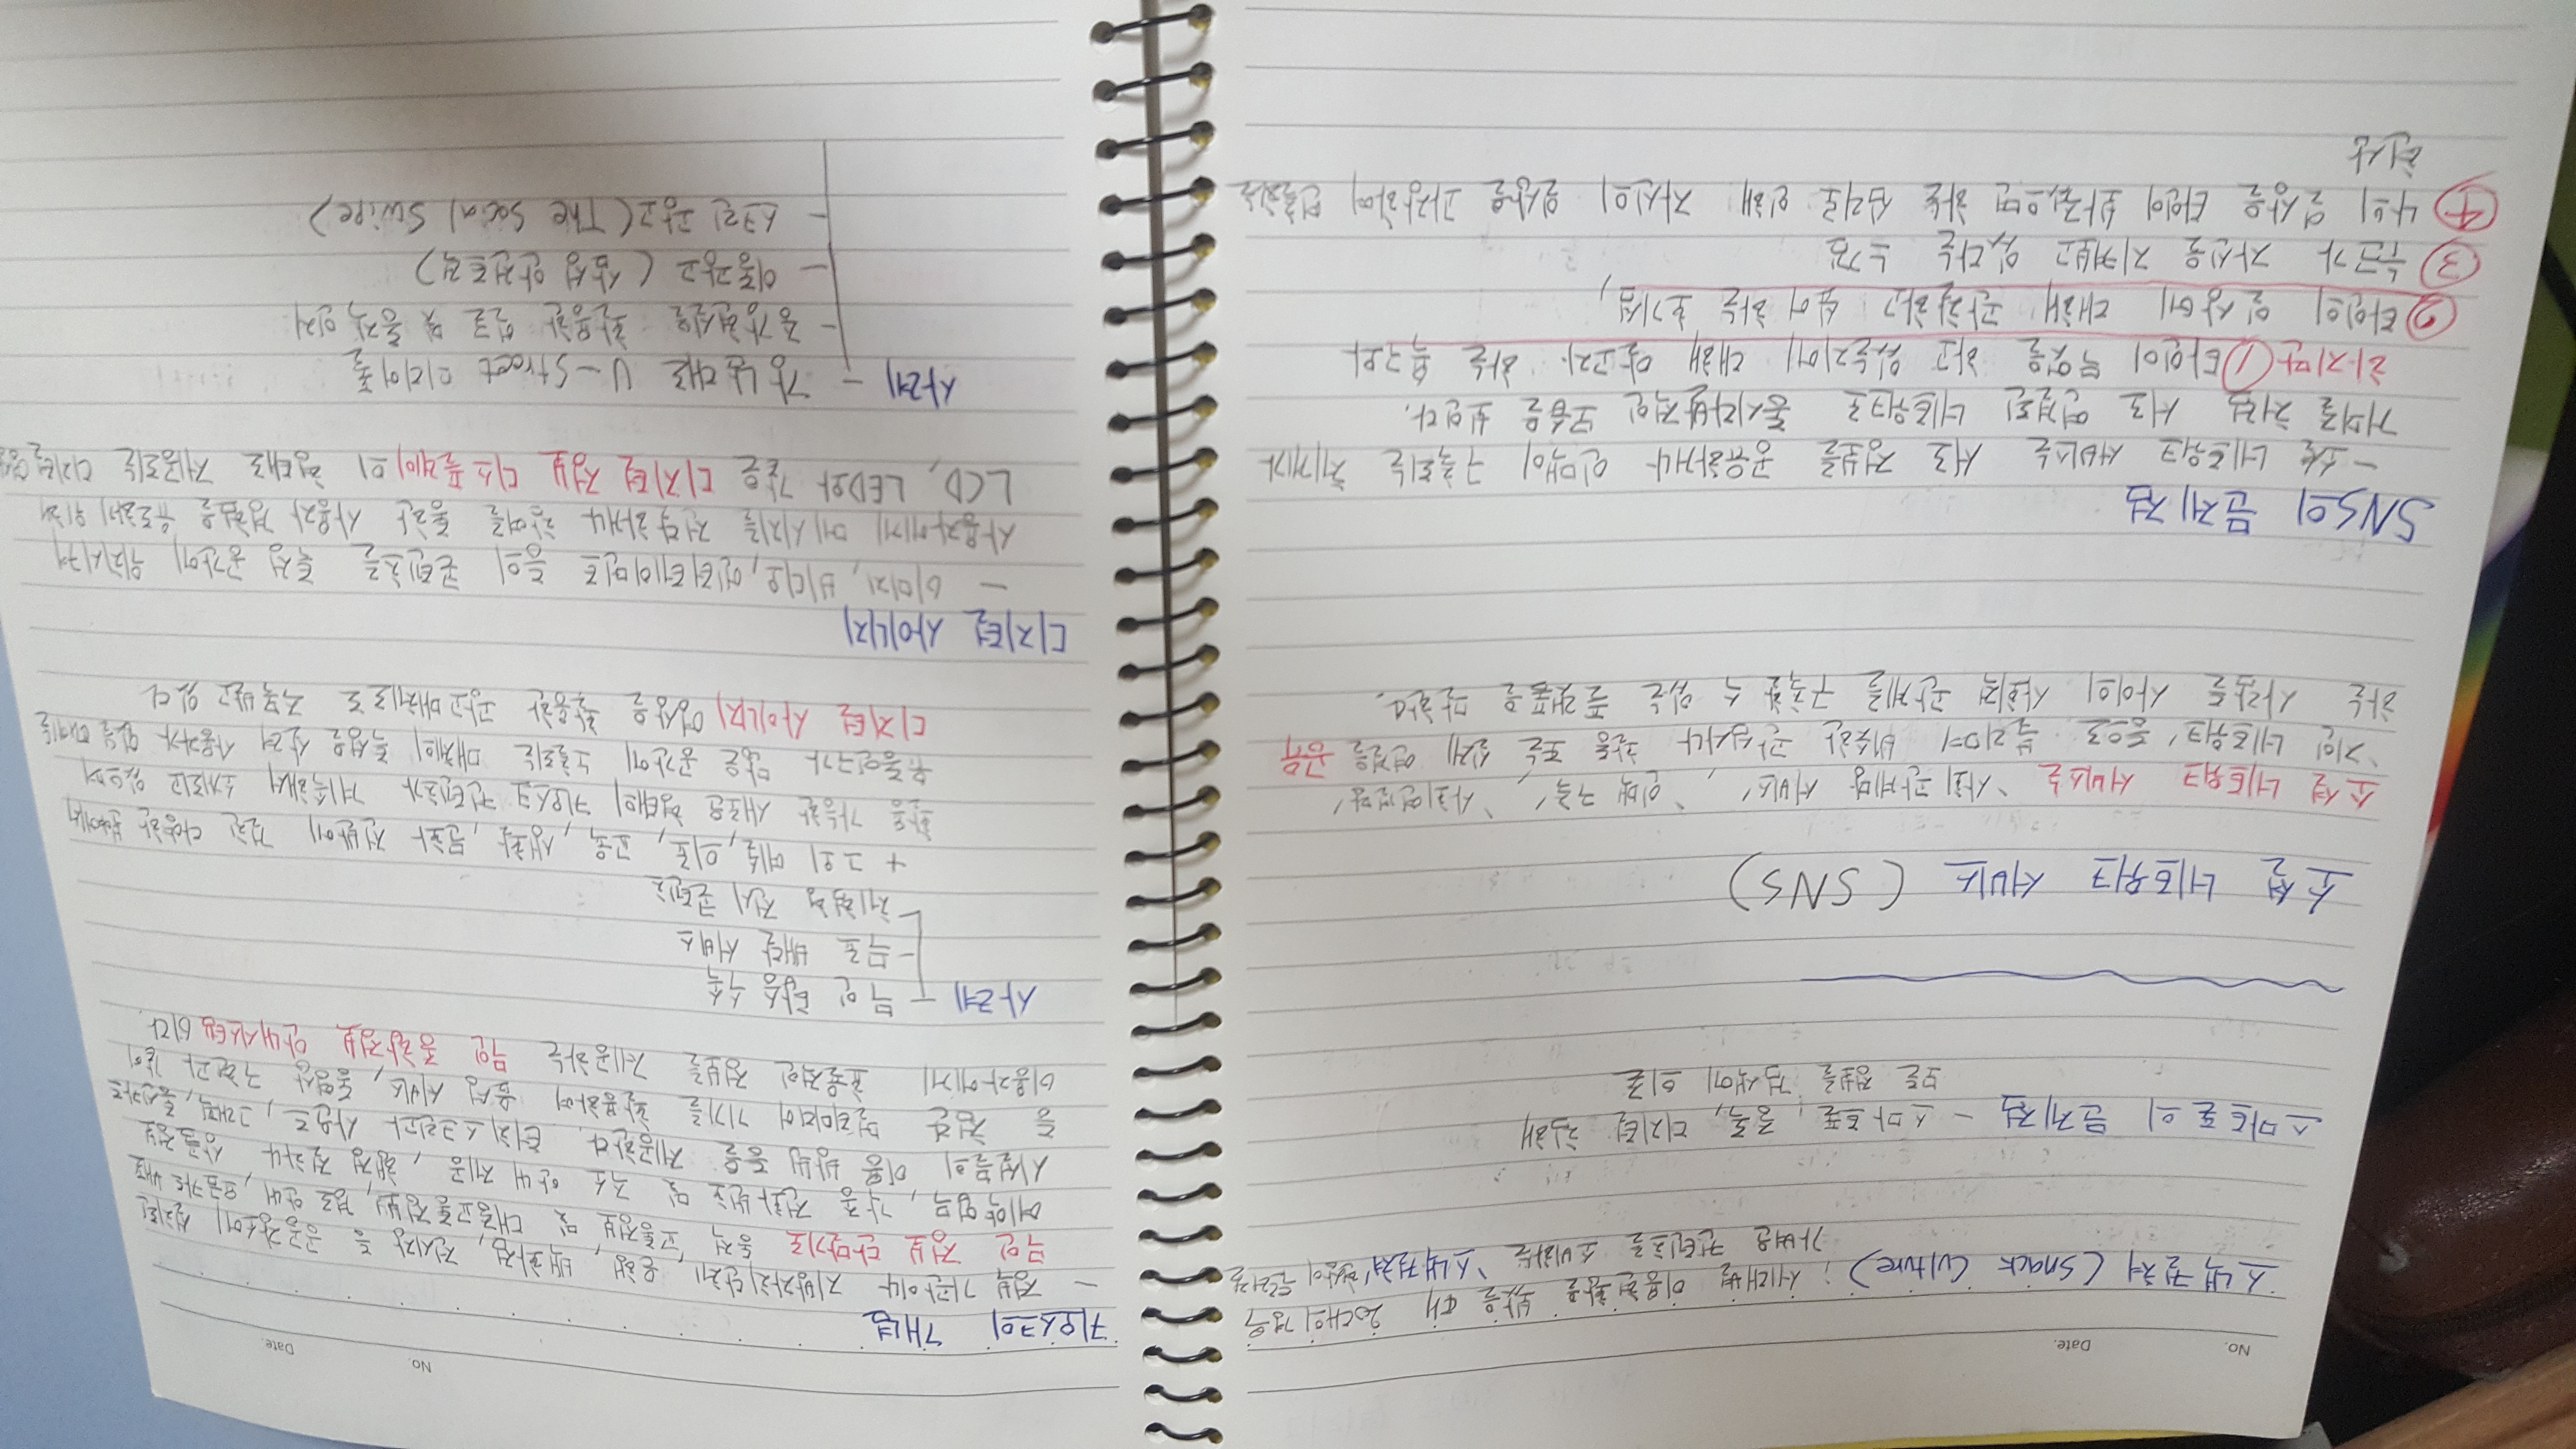 No. Date.
스낵컬쳐 (Snack Culture) ; 세대별 이용현황을 봤을 때 20대의 경우
가벼운 컨텐츠를 소비하는 '스낵컬쳐' 현상이 두드러짐
스마트폰의 문제점 - 스마트폰 중독, 디지털 치매
모든 정보를 검색에 의존
소셜 네트워크 서비스 (SNS)
소셜 네트워크 서비스는 '사회 관계망 서비스', '인맥 구축', '사회연결망',
'지인 네트워크' 등으로 불리며 비슷한 관심사나 활동 또는 실제 연결을 공유
하는 사람들 사이의 사회적 관계를 구축할 수 있는 플랫폼을 말한다.
SNS의 문제점
- 소셜 네트워크 서비스는 서로 정보를 공유하거나 인맥이 구축되는 체계가
거미줄처럼 서로 연결된 네트워크로 동시다발적인 모습을 보인다.
하지만 ① 타인이 무엇을 하고 있는지에 대해 알고자 하는 욕구와
② 타인의 일상에 대해 관찰하고 싶어 하는 호기심,
③ 누군가 자신을 지켜보고 있다는 느낌
④ 나의 일상을 타인이 봐줬으면 하는 심리로 인해 자신의 일상을 과장하여 연출하는
현상
No. Date.
키오스크의 개념
- 정부 기관이나 지방자치단체, 은행, 백화점, 전시장 등 공공장소에 설치된
무인 정보 단말기로 동적 교통정보 및 대중교통정보, 경로 안내, 요금카드 배포
예약 업무, 각종 전화번호 및 주소 안내 제공, 행정 절차나 상품정보
시설물의 이용 방법 등을 제공한다. 터치스크린과 사운드, 그래픽, 통신카드
등 첨단 멀티미디어 기기를 활용하여 음성 서비스, 동영상 구현과 같이
이용자에게 효율적인 정보를 제공하는 무인 종합정보 안내시스템이다.
사례 - 무인 탑승 수속
- 무료 배달 서비스
- 체험형 전시 콘텐츠
+ 그외 예술, 의료, 교육, 생활, 문화 전반에 걸친 다양한 분야에서
활용 가능한 새로운 형태의 키오스크 컨텐츠가 계속해서 소개되고 있으며
유동인구가 많은 공간에 노출되는 매체의 특성을 살려 사용자가 없을 때에는
디지털 사이니지 영상을 활용한 광고매체로도 주목받고 있다
디지털 사이니지
- 이미지, 비디오, 엔터테이먼트 등의 콘텐츠를 특정 공간에 위치시켜
사용자에게 메시지를 전달하거나 참여를 통한 사용자 경험을 유도하기 위해
LCD, LED와 같은 디지털 정보 디스플레이의 형태로 제공되는 디지털영상
사례 - 강남대로 U-Street 미디어폴
- 증강현실을 활용한 얼굴 및 동작 인지
- 이동광고 (삼성 안전트럭)
- 스크린 광고 (The Social Swipe)